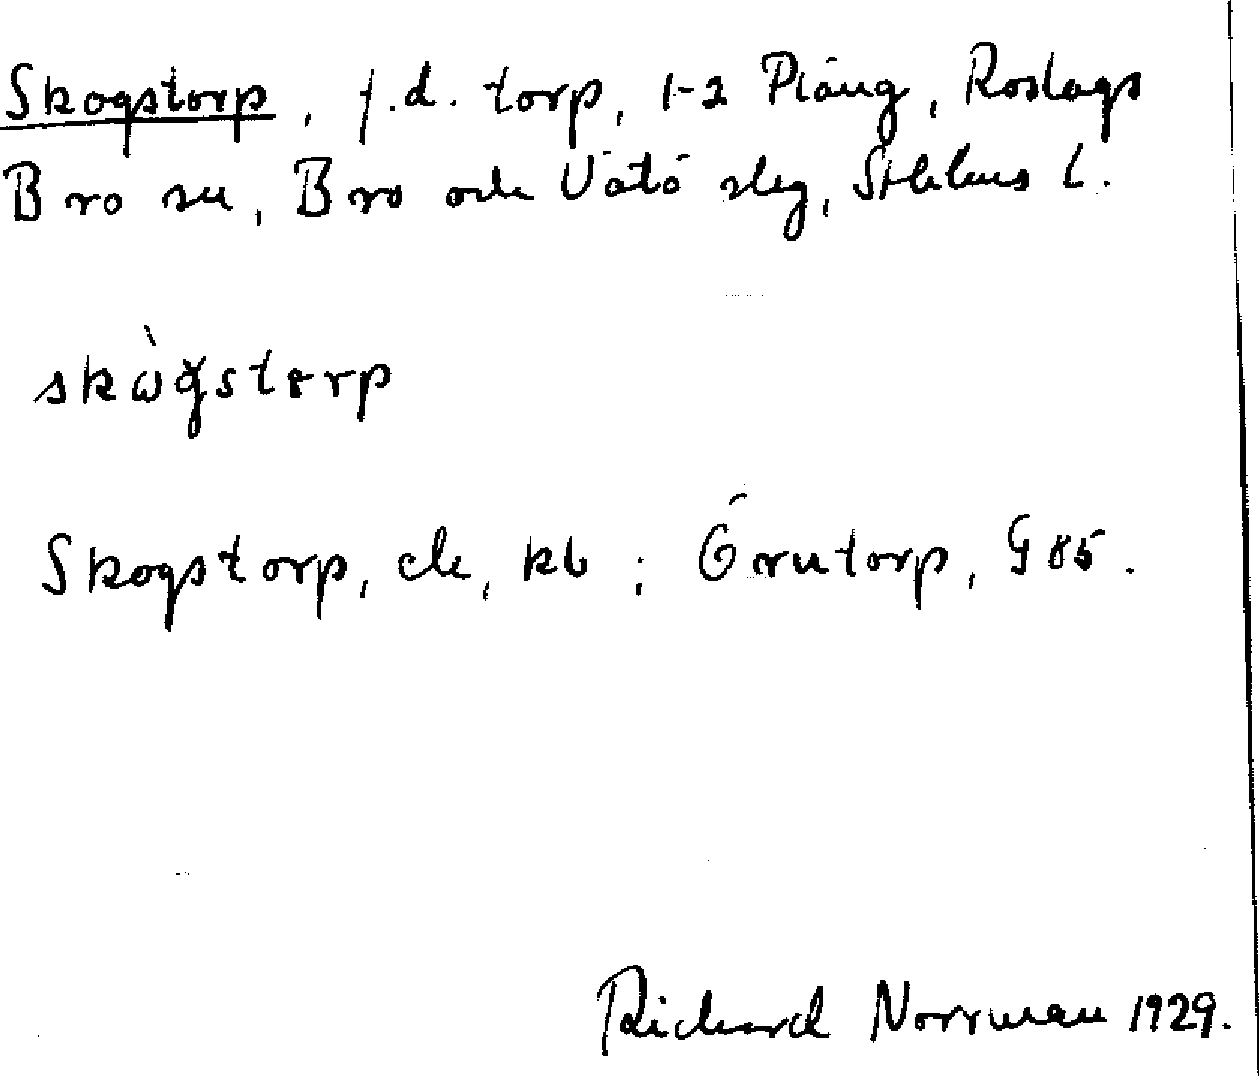 Skogstorp, f.d. torp, 1-2 Pläng, Roslags
Bro sn, Bro och Vätö slg, Sthlms l.
skògstorp
Skogstorp, ek, kb; Örntorp, G 85.
Richard Norrman 1929.